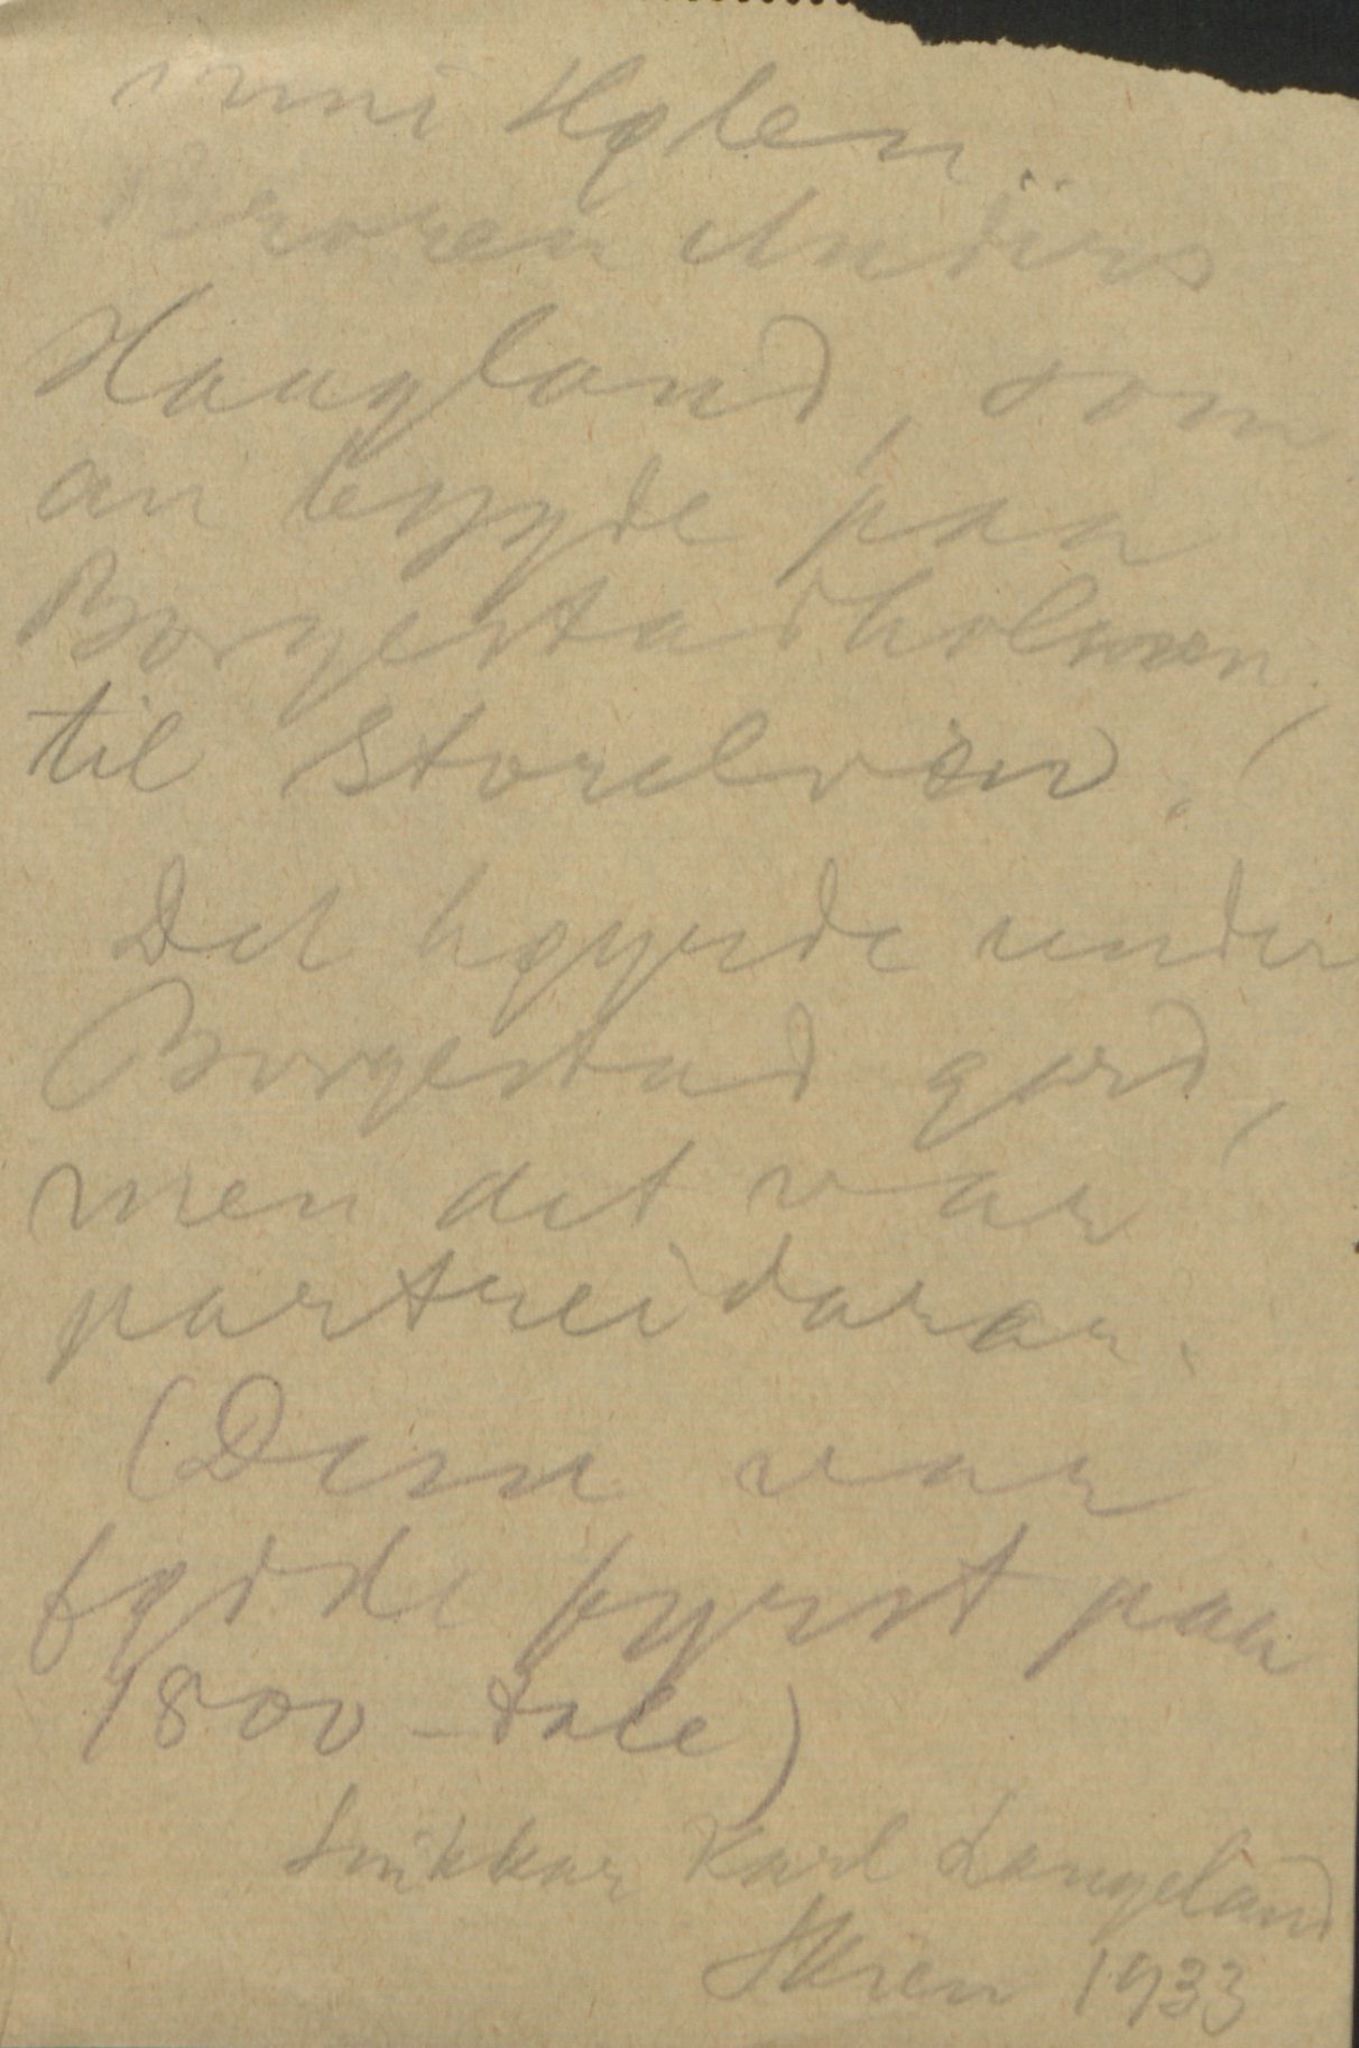 inni Hølen.
Broren Anders
Haugland, som
an bygde paa
Borgestadholmen,
til Storelven.
Det høyrde under
Borgestad gard,
men det var
partreidarar.
(Dem var
fødde fyrst paa
1800-tale)
Snikkar Karl Langeland
Skien 1933